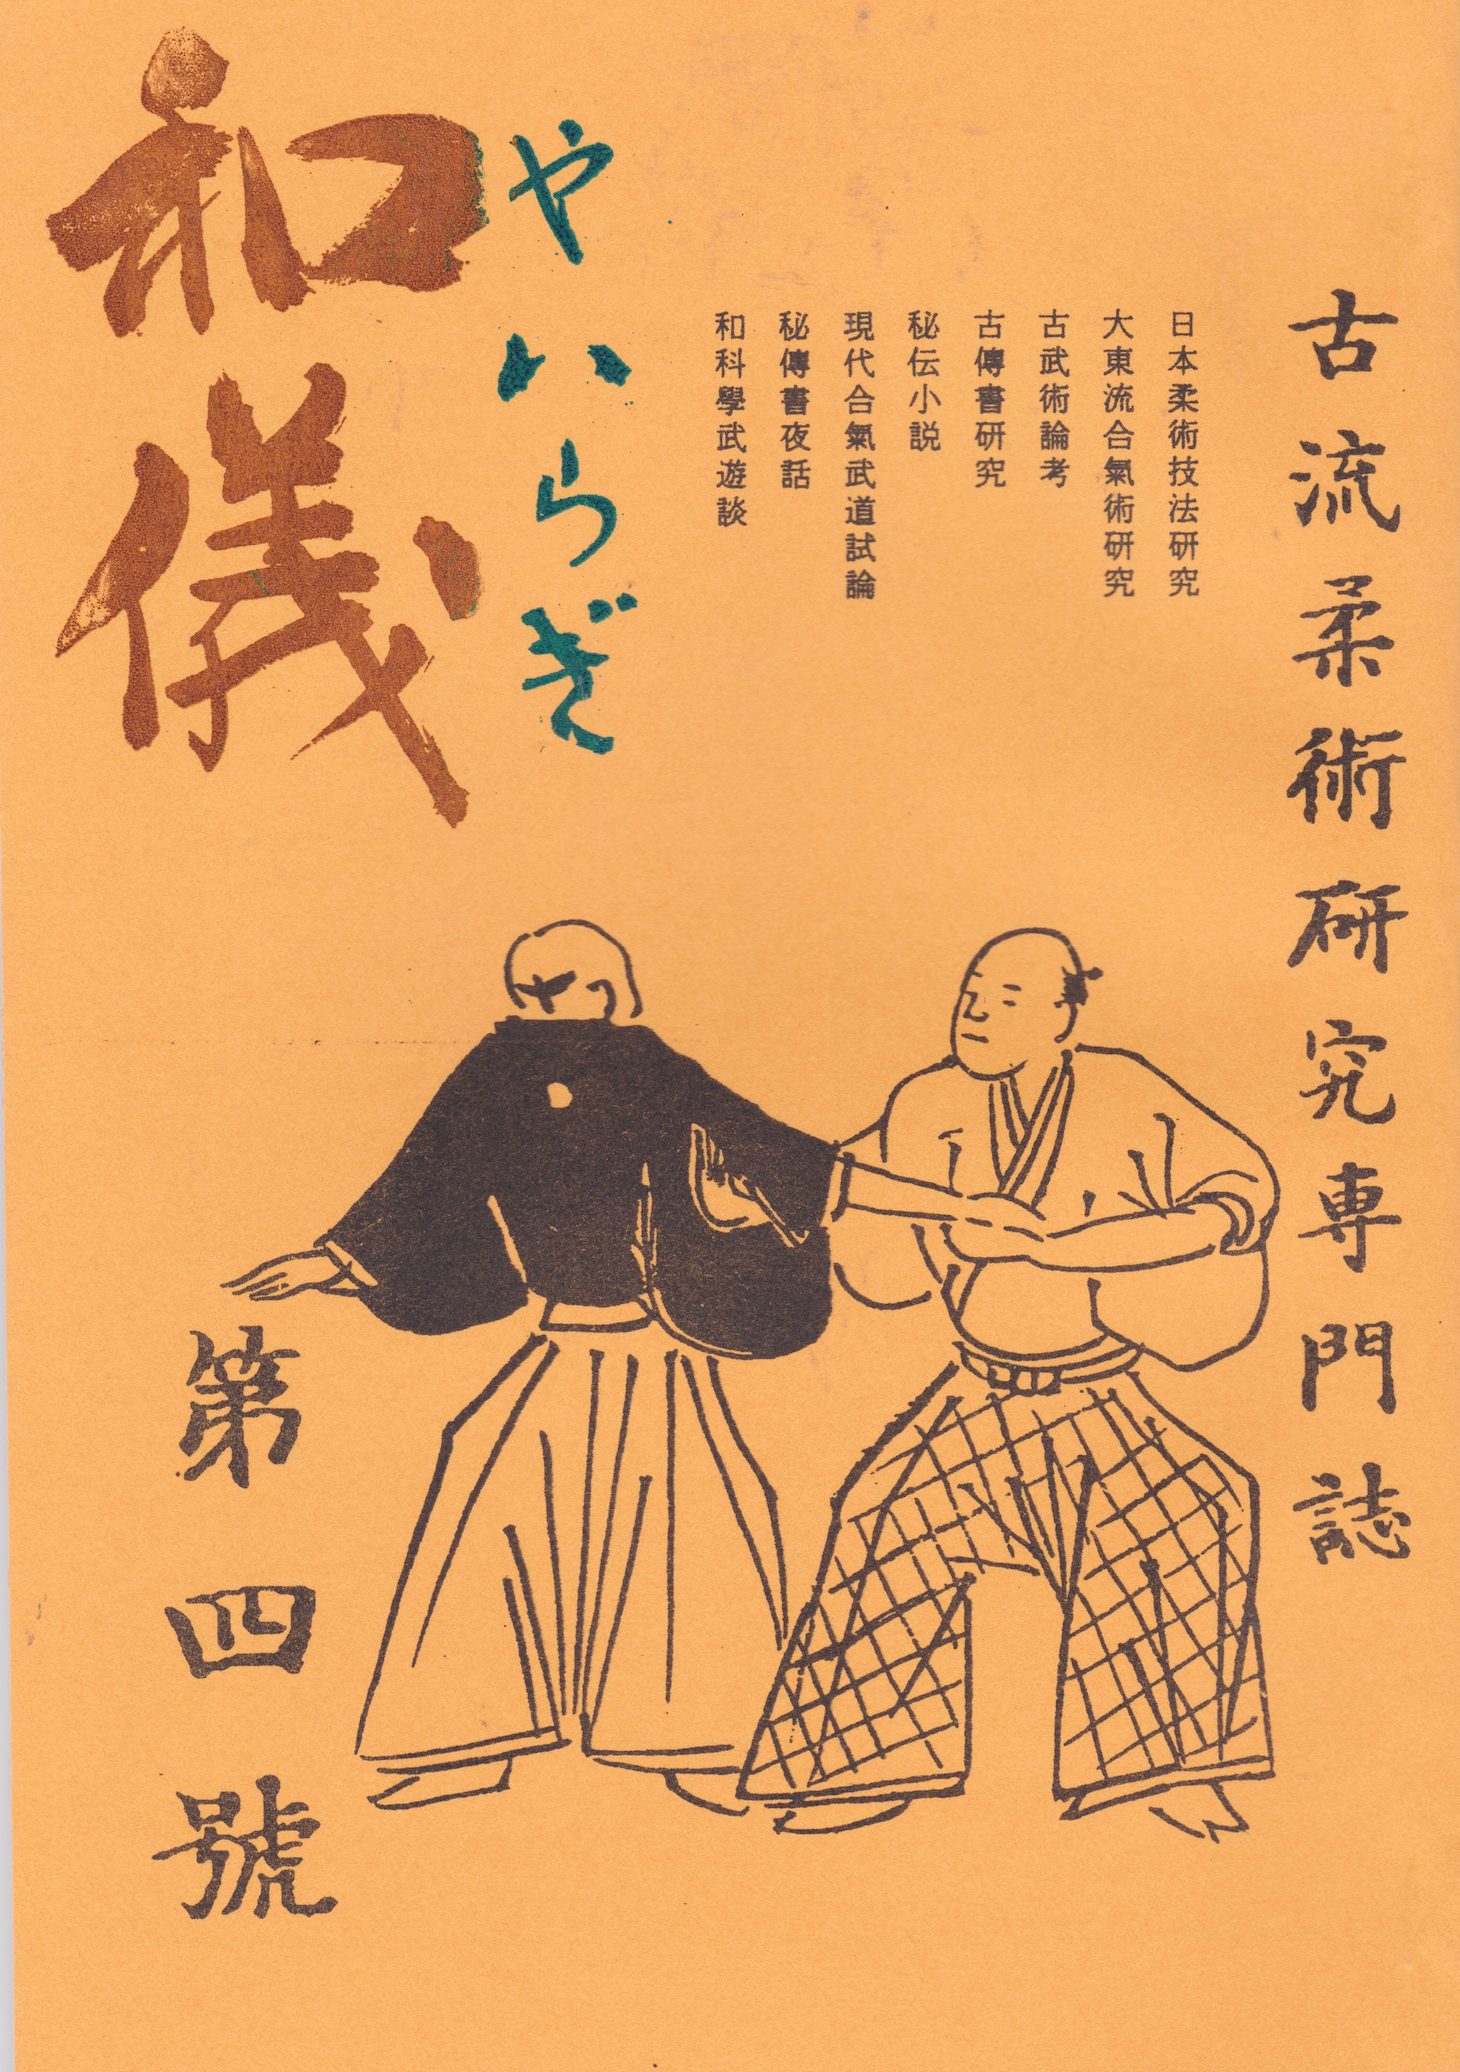 古流柔術研究専門誌
日本柔術技法研究
大東流合氣術研究
古武術論考
古傳書研究
秘伝小説
現代合氣武道試論
秘傳書夜話
和科學武遊談
やはらぎ
和儀
第四號